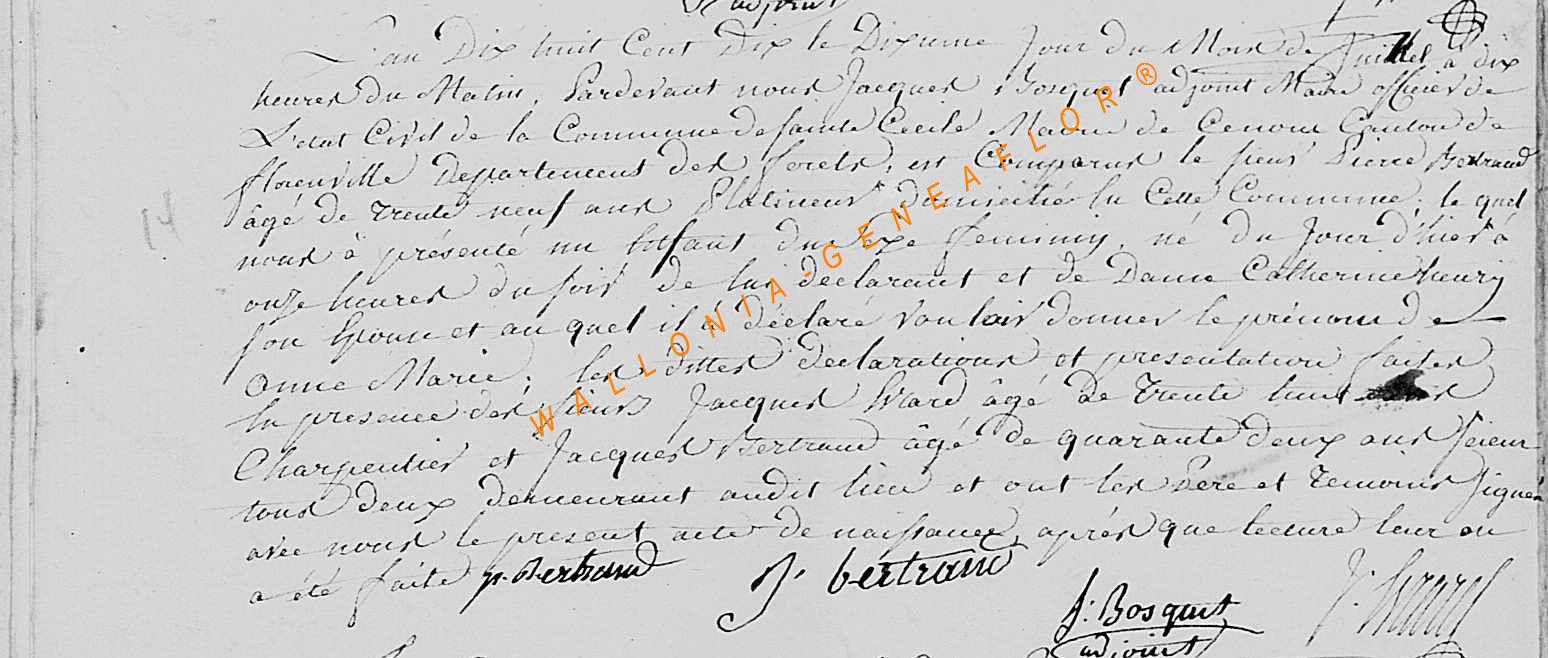 adjoint
L'an Dix huit Cent Dix le Dixieme Jour du Mois de Juillet à dix
heures du Matin, Pardevant nous Jacques Bosquet adjoint Maire officier de
L'état Civil de la Commune de sainte Cecile Mairie de Canton de
florenville Departement des forets, est Comparus le sieur Pierre Bertrand
âgé de trente neuf ans Platineur domicilié En Cette Commune, le quel
nous à présenté un Enfant du sexe feminin, né du Jour d'hier à
onze heures du soir de lui déclarant et de Dame Catherine henry
son Epouse et au quel il à déclaré vouloir donner le prénom de
anne Marie; les dittes déclarations et présentation faites
En presence des sieurs Jacques âgé de trente huit ans
Charpentier et Jacques Bertrand âgé de quarante deux ans scieur
tous deux demeurant audit lieu et ont les Pere et Temoins signés
avec nous le present acte de naissance, après que lecture leur en
a été faite p. Bertrand J. bertrand
J. Bosquet
adjoint
14
WALLONIA-GENEAFLOR®